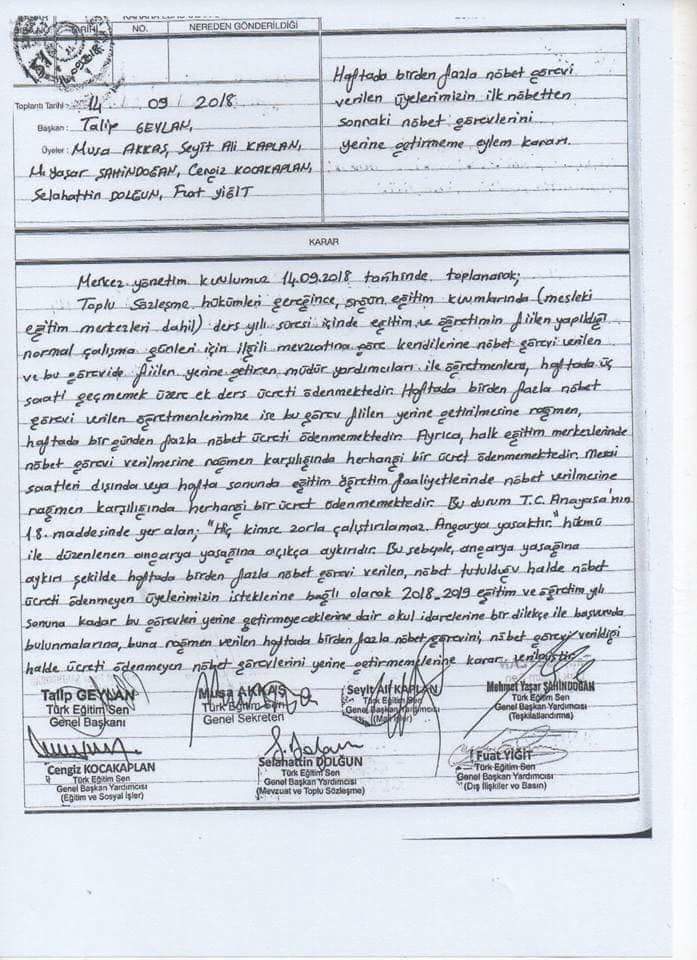 TARİHİ
NO.
NEREDEN GÖNDERİLDİĞİ
Toplantı Tarihi : 14 09 / 2018
Başkan : Talip GEYLAN,
Üyeler : Musa AKKAŞ, Seyit Ali KAPLAN,
M.Yaşar ŞAHİNDOĞAN, Cengiz KOCAKAPLAN,
Selahattin DOLGUN, Fuat YİĞİT
Haftada birden fazla nöbet görevi
verilen üyelerimizin ilk nöbetten
sonraki nöbet görevlerini
yerine getirmeme eylem kararı.
KARAR
Merkez yönetim kurulumuz 14.09.2018 tarihinde toplanarak;
Toplu Sözleşme hükümleri gereğince, örgün eğitim kurumlarında (mesleki
eğitim merkezleri dahil) ders yılı süresi içinde eğitim ve öğretimin fiilen yapıldığı
normal çalışma günleri için ilgili mevzuatına göre kendilerine nöbet görevi verilen
ve bu görevide fiilen yerine getiren müdür yardımcıları ile öğretmenlere, haftada üç
saati geçmemek üzere ek ders ücreti ödenmektedir. Haftada birden fazla nöbet
görevi verilen öğretmenlerimize ise bu görev fiilen yerine getirilmesine rağmen,
haftada bir günden fazla nöbet ücreti ödenmemektedir. Ayrıca, halk eğitim merkezlerinde
nöbet görevi verilmesine rağmen karşılığında herhangi bir ücret ödenmemektedir. Mesai
saatleri dışında veya hafta sonunda eğitim öğretim faaliyetlerinde nöbet verilmesine
rağmen karşılığında herhangi bir ücret ödenmemektedir. Bu durum T.C. Anayasa'nın
18. maddesinde yer alan; "Hiç kimse zorla çalıştırılamaz. Angarya yasaktır." hükmü
ile düzenlenen angarya yasağına açıkça aykırıdır. Bu sebeple, angarya yasağına
aykırı şekilde haftada birden fazla nöbet görevi verilen, nöbet tutulduğu halde nöbet
ücreti ödenmeyen üyelerimizin isteklerine bağlı olarak 2018-2019 eğitim ve öğretim yılı
sonuna kadar bu görevleri yerine getirmeyeceklerine dair okul idarelerine bir dilekçe ile başvuruda
bulunmalarına, buna rağmen verilen haftada birden fazla nöbet görevini, nöbet görevi verildiği
halde ücreti ödenmeyen nöbet görevlerini yerine getirmemelerine karar verilmiştir.
Talip GEYLAN
Türk Eğitim Sen
Genel Başkanı
Musa AKKAŞ
Türk Eğitim Sen
Genel Sekreteri
Seyit Ali KAPLAN
Türk Eğitim Sen
Genel Başkan Yardımcısı
(Mali İşler)
Mehmet Yaşar ŞAHİNDOĞAN
Türk Eğitim Sen
Genel Başkan Yardımcısı
(Teşkilatlandırma)
Cengiz KOCAKAPLAN
Türk Eğitim Sen
Genel Başkan Yardımcısı
(Eğitim ve Sosyal İşler)
Selahattin DOLĞUN
Türk Eğitim Sen
Genel Başkan Yardımcısı
(Mevzuat ve Toplu Sözleşme)
Fuat YİĞİT
Türk Eğitim Sen
Genel Başkan Yardımcısı
(Dış İlişkiler ve Basın)